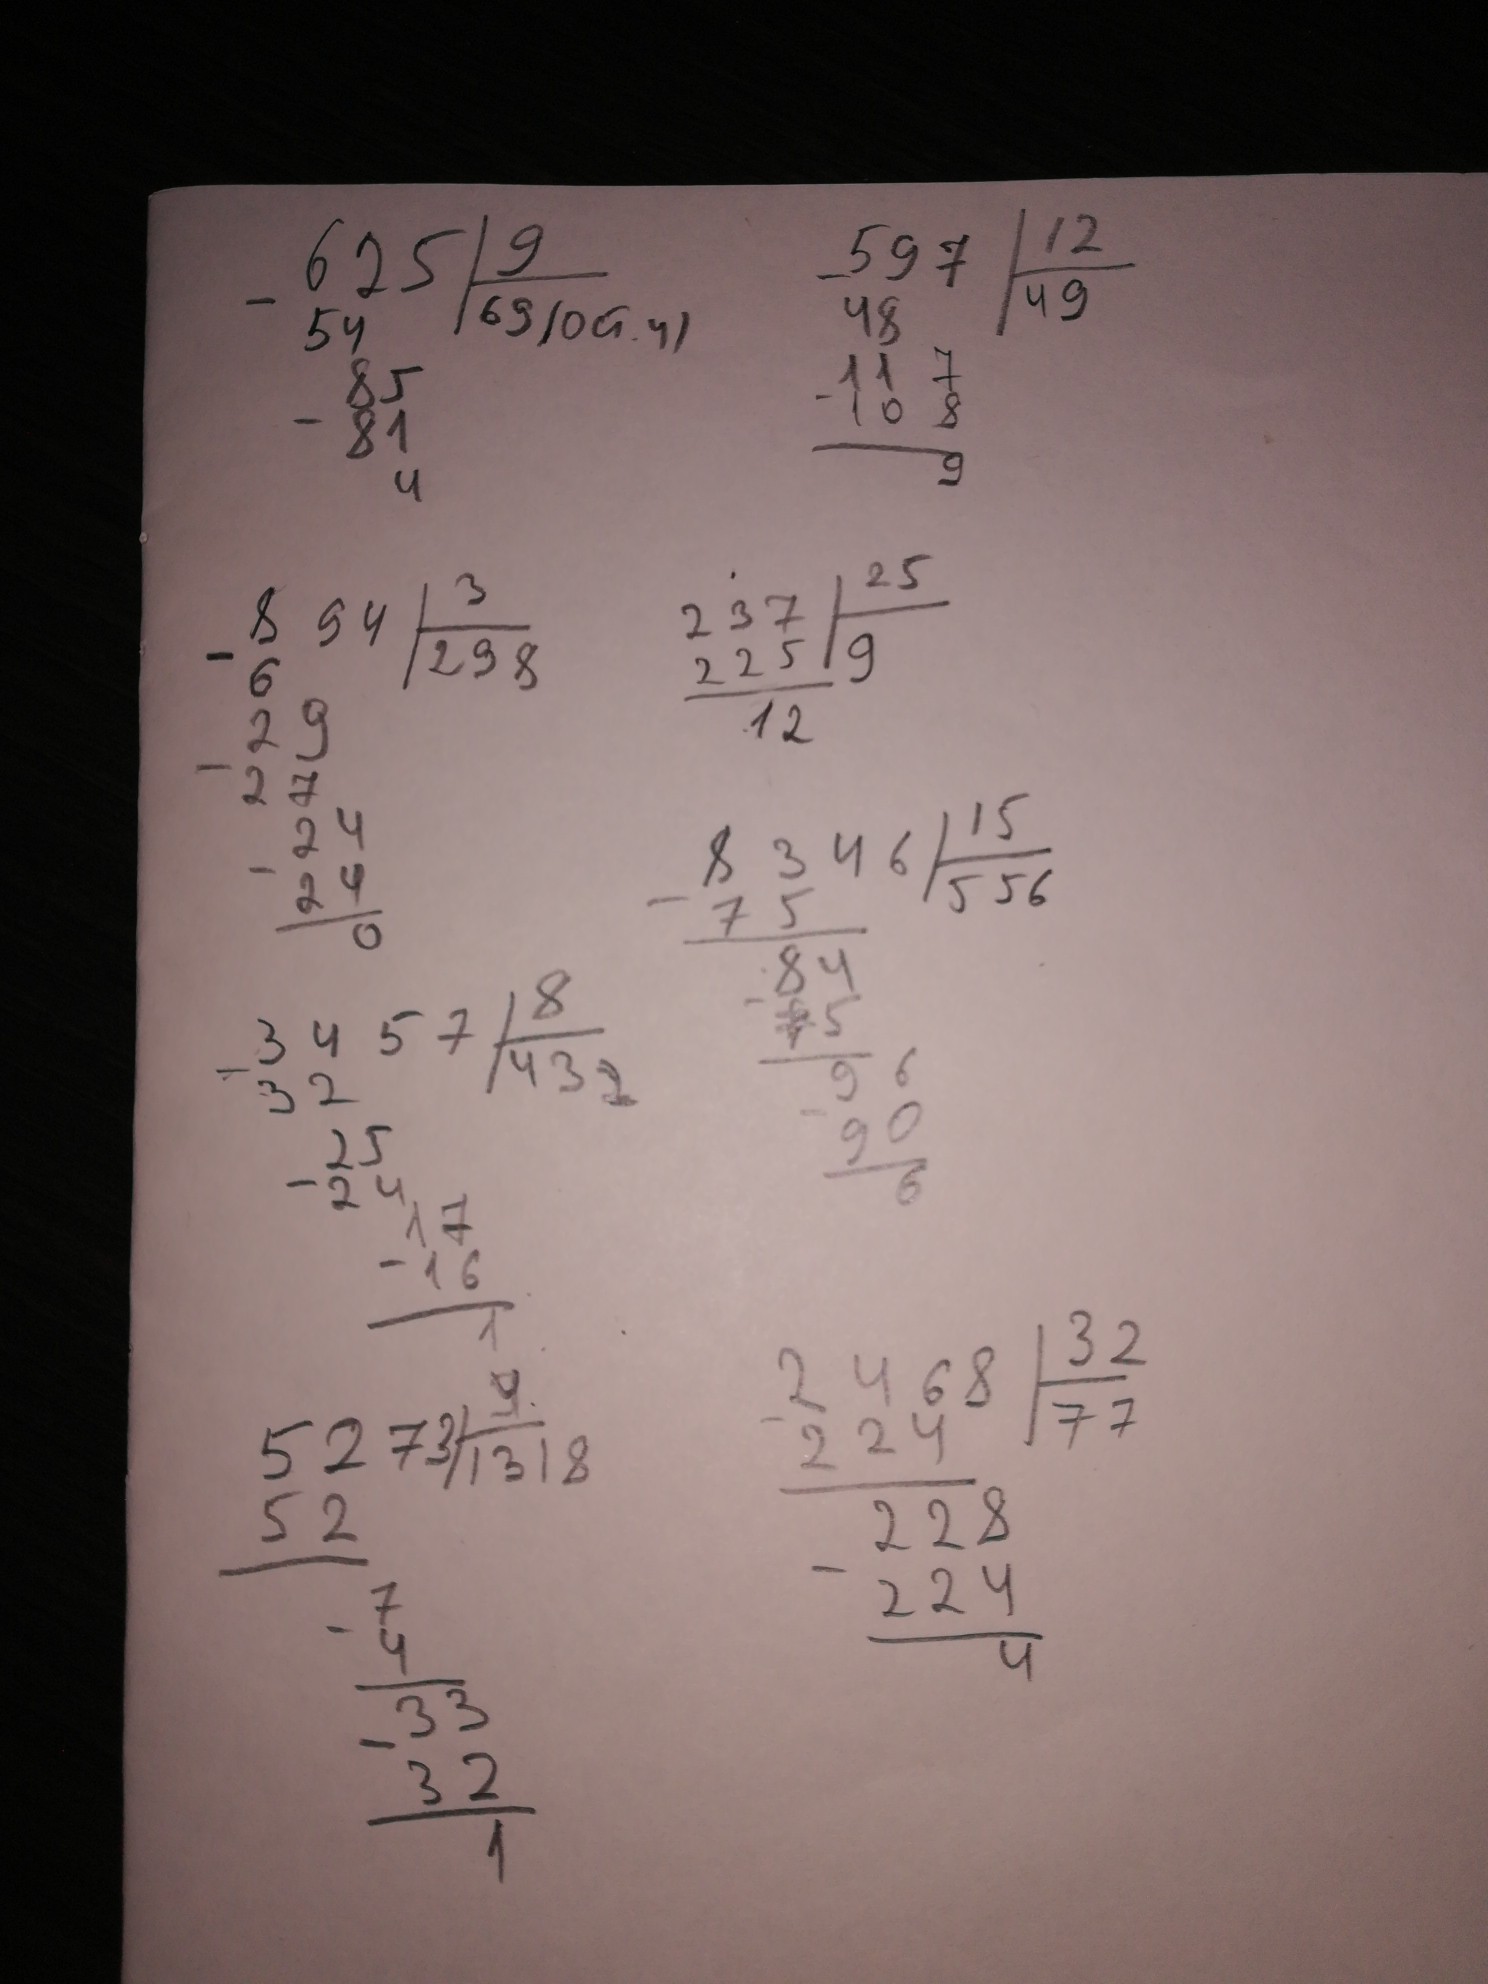 625 9
- 54 69 (ост. 4)
85
- 81
4
- 597 12
48 49
117
- 108
9
- 894 3
6 298
29
- 27
24
- 24
0
237 25
225 9
12
- 8346 15
75 556
84
- 75
96
- 90
6
- 3457 8
32 432
25
- 24
17
- 16
1
5273 4
52 1318
7
- 4
33
- 32
1
2468 32
- 224 77
228
- 224
4